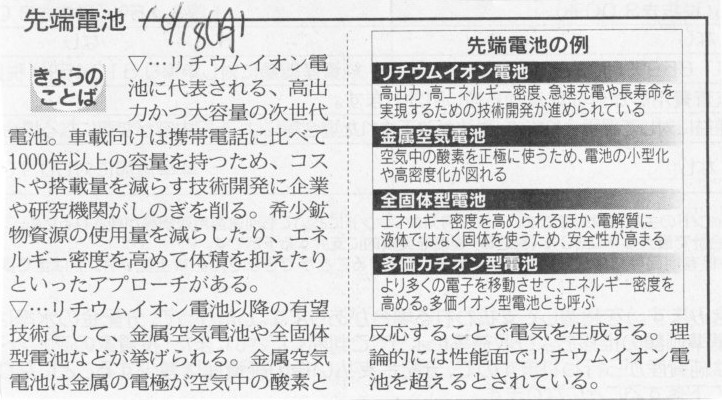 先端電池
10/18(月)
きょうの
ことば
▽…リチウムイオン電
池に代表される、高出
力かつ大容量の次世代
電池。車載向けは携帯電話に比べて
1000倍以上の容量を持つため、コス
トや搭載量を減らす技術開発に企業
や研究機関がしのぎを削る。希少鉱
物資源の使用量を減らしたり、エネ
ルギー密度を高めて体積を抑えたり
といったアプローチがある。
▽…リチウムイオン電池以降の有望
技術として、金属空気電池や全固体
型電池などが挙げられる。金属空気
電池は金属の電極が空気中の酸素と
反応することで電気を生成する。理
論的には性能面でリチウムイオン電
池を超えるとされている。
先端電池の例
リチウムイオン電池
高出力・高エネルギー密度、急速充電や長寿命を
実現するための技術開発が進められている
金属空気電池
空気中の酸素を正極に使うため、電池の小型化
や高密度化が図れる
全固体型電池
エネルギー密度を高められるほか、電解質に
液体ではなく固体を使うため、安全性が高まる
多価カチオン型電池
より多くの電子を移動させて、エネルギー密度を
高める。多価イオン型電池とも呼ぶ